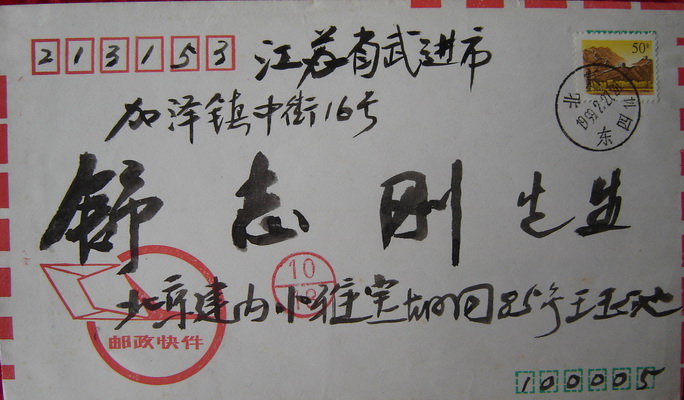 213153
江苏省武进市
加泽镇中街16号
舒志刚先生
北京建内小雅宝胡同85号王玉池
邮政快件
10
18
50分
北京
1999.2.21
东四
100005